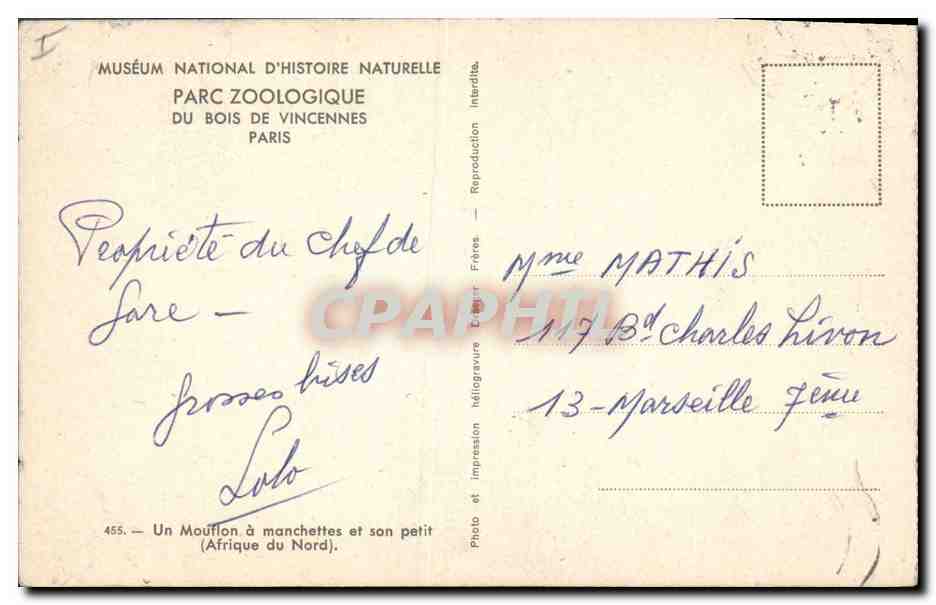 I
MUSÉUM NATIONAL D'HISTOIRE NATURELLE
PARC ZOOLOGIQUE
DU BOIS DE VINCENNES
PARIS
Propriété du chef de
gare –
grosses bises
Lolo
455. — Un Mouflon à manchettes et son petit
(Afrique du Nord).
Photo et impression héliogravure Draeger Frères — Reproduction interdite.
Mme MATHIS
117 Bd Charles Livon
13 - Marseille 7ème
CPAPHIL